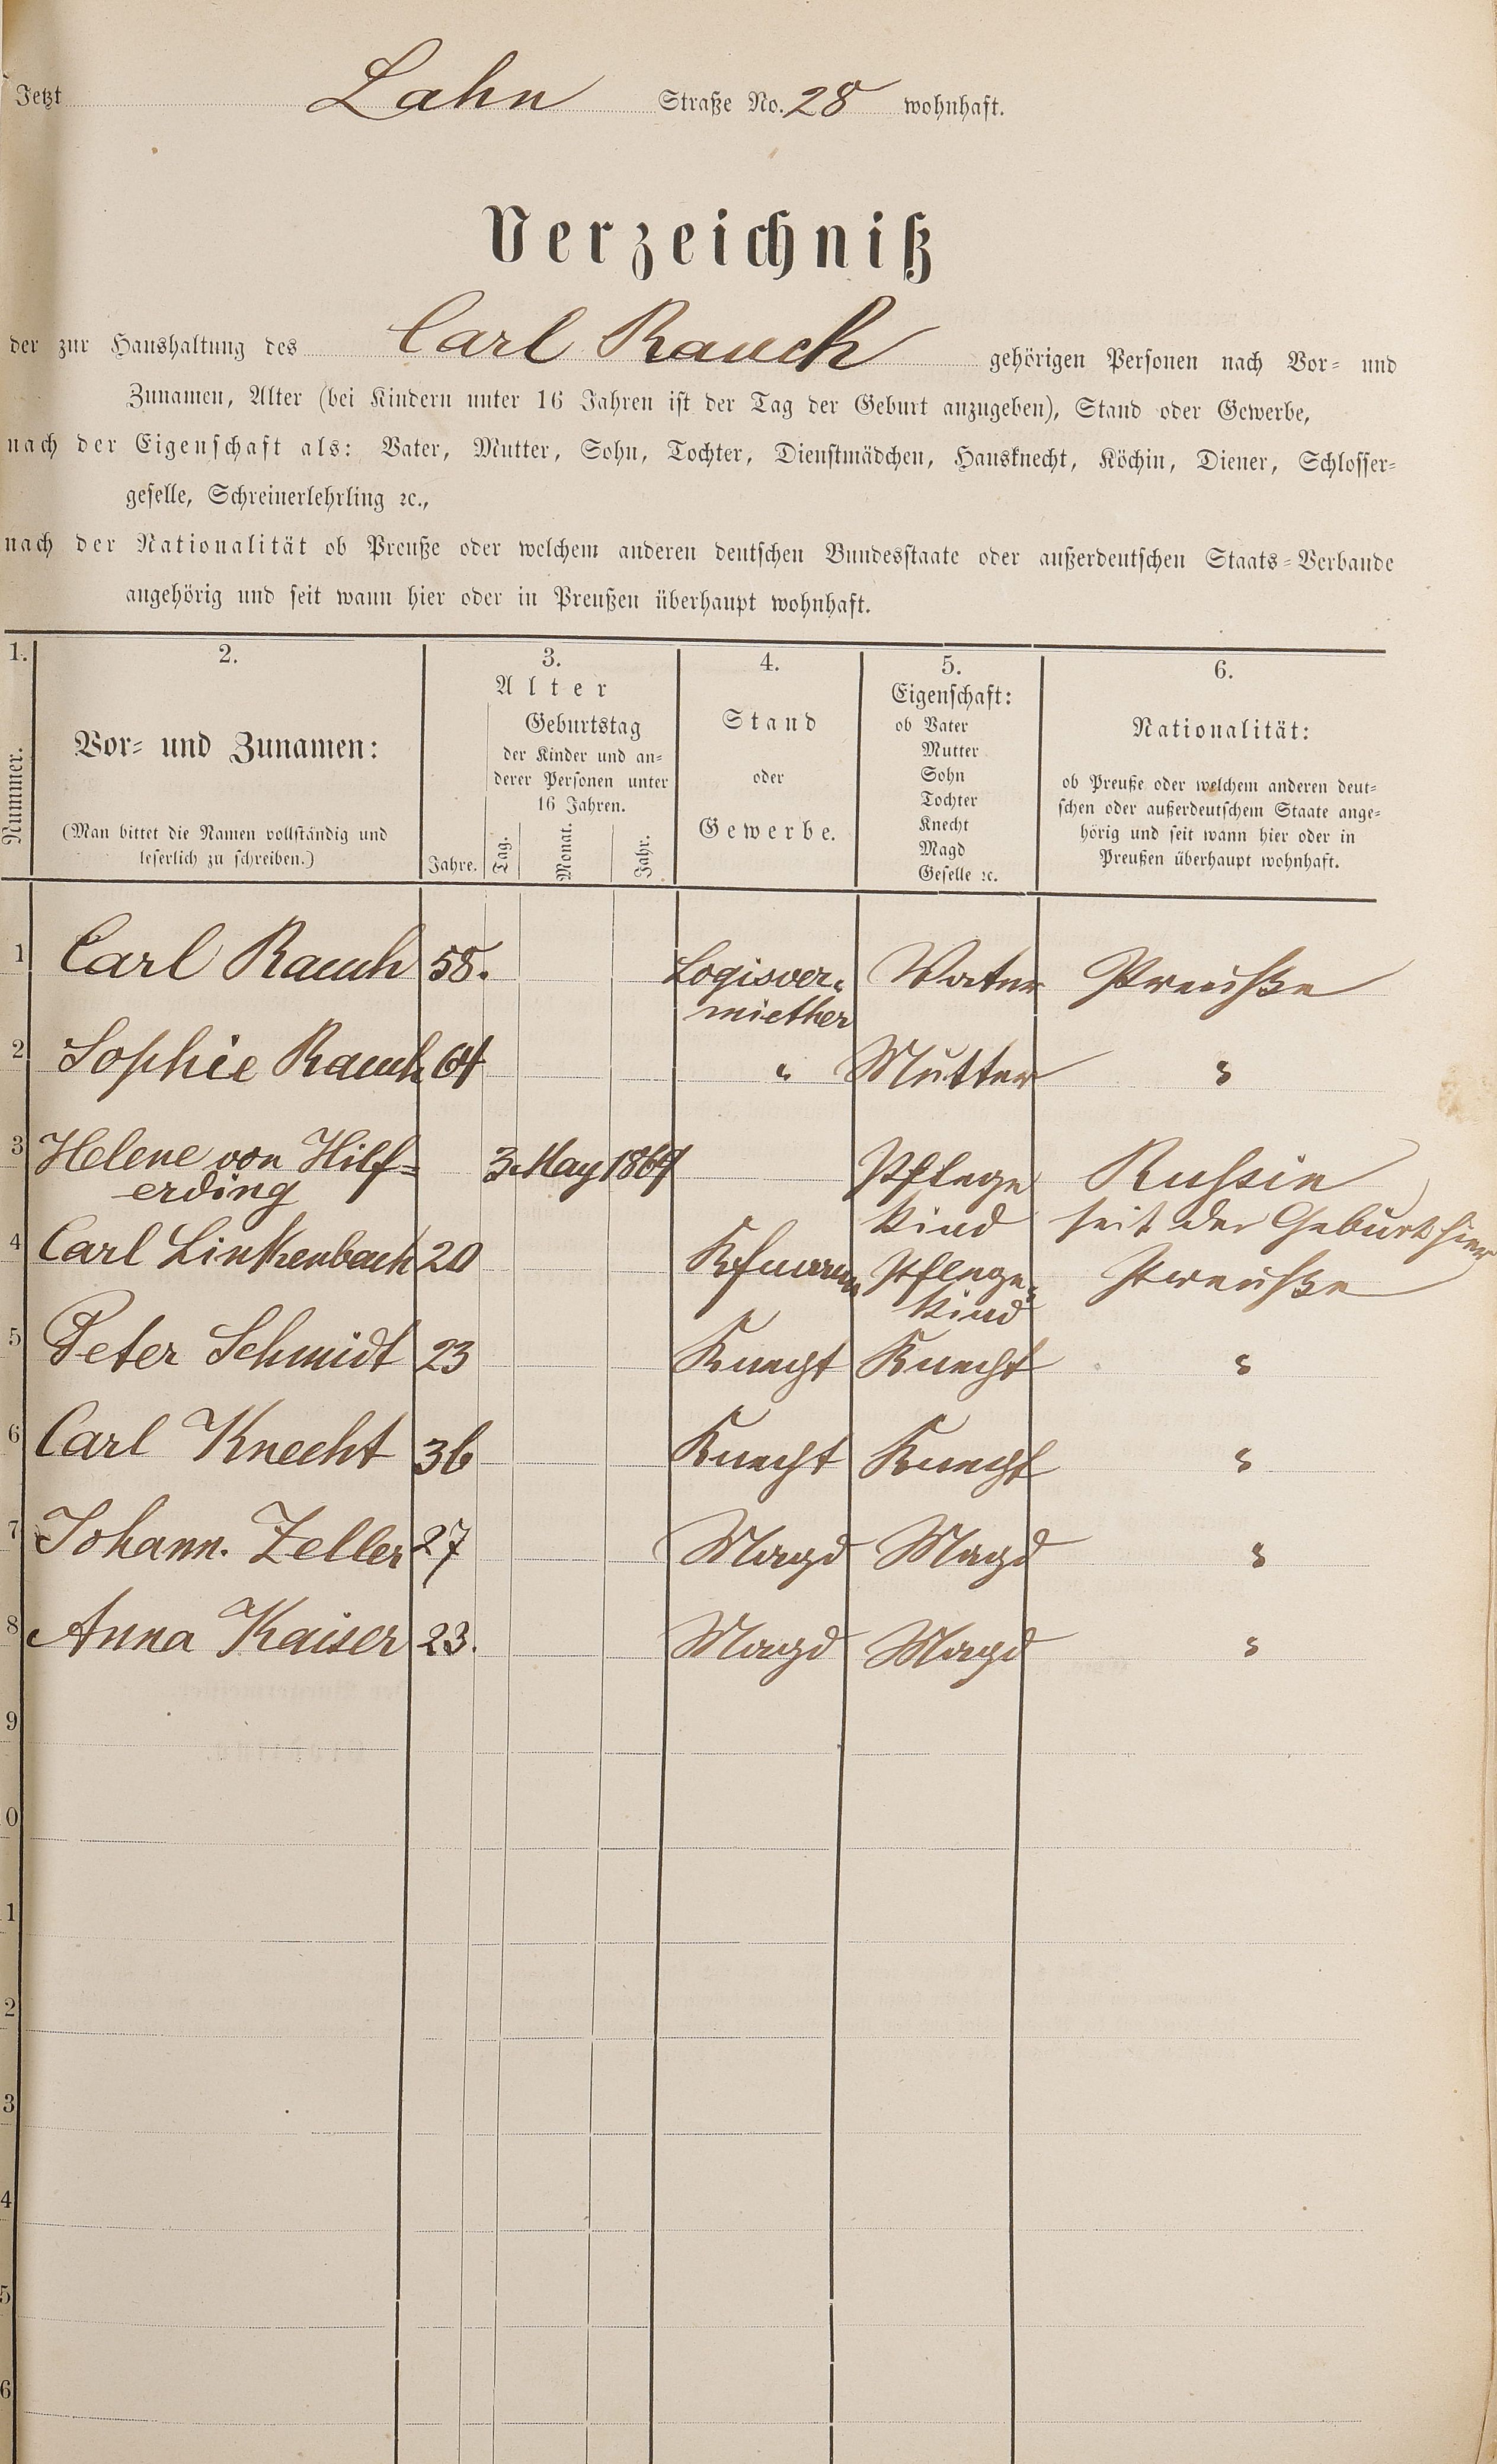 Jetzt Lahn Straße No. 28 wohnhaft.
Verzeichniß
der zur Haushaltung des Carl Rauch gehörigen Personen nach Vor- und
Zunamen, Alter (bei Kindern unter 16 Jahren ist der Tag der Geburt anzugeben), Stand oder Gewerbe,
nach der Eigenschaft als: Vater, Mutter, Sohn, Tochter, Dienstmädchen, Hausknecht, Köchin, Diener, Schlosser-
geselle, Schreinerlehrling ꝛc.,
nach der Nationalität ob Preuße oder welchem anderen deutschen Bundesstaate oder außerdeutschen Staats-Verbande
angehörig und seit wann hier oder in Preußen überhaupt wohnhaft.
1. 2. 3. 4. 5. 6.
Nummer.
Vor- und Zunamen:
(Man bittet die Namen vollständig und
leserlich zu schreiben.)
Alter
Jahre.
Geburtstag
der Kinder und an-
derer Personen unter
16 Jahren.
Tag. Monat. Jahr.
Stand
oder
Gewerbe.
Eigenschaft:
ob Vater
Mutter
Sohn
Tochter
Knecht
Magd
Geselle ꝛc.
Nationalität:
ob Preuße oder welchem anderen deut-
schen oder außerdeutschem Staate ange-
hörig und seit wann hier oder in
Preußen überhaupt wohnhaft.
1 Carl Rauch 58. Logisver- Vater Preuße
miether
2 Sophie Rauch 64 " Mutter "
3 Helene von Hilf- 3. May 1869 Pflege Russin
erding Kind seit der Geburt hier
4 Carl Linkenbach 20 Kfmann Pflege- Preuße
Kind
5 Peter Schmidt 23 Knecht Knecht "
6 Carl Knecht 36 Knecht Knecht "
7 Johann. Zeller 27 Magd Magd "
8 Anna Kaiser 23. Magd Magd "
9
0
1
2
3
4
5
6